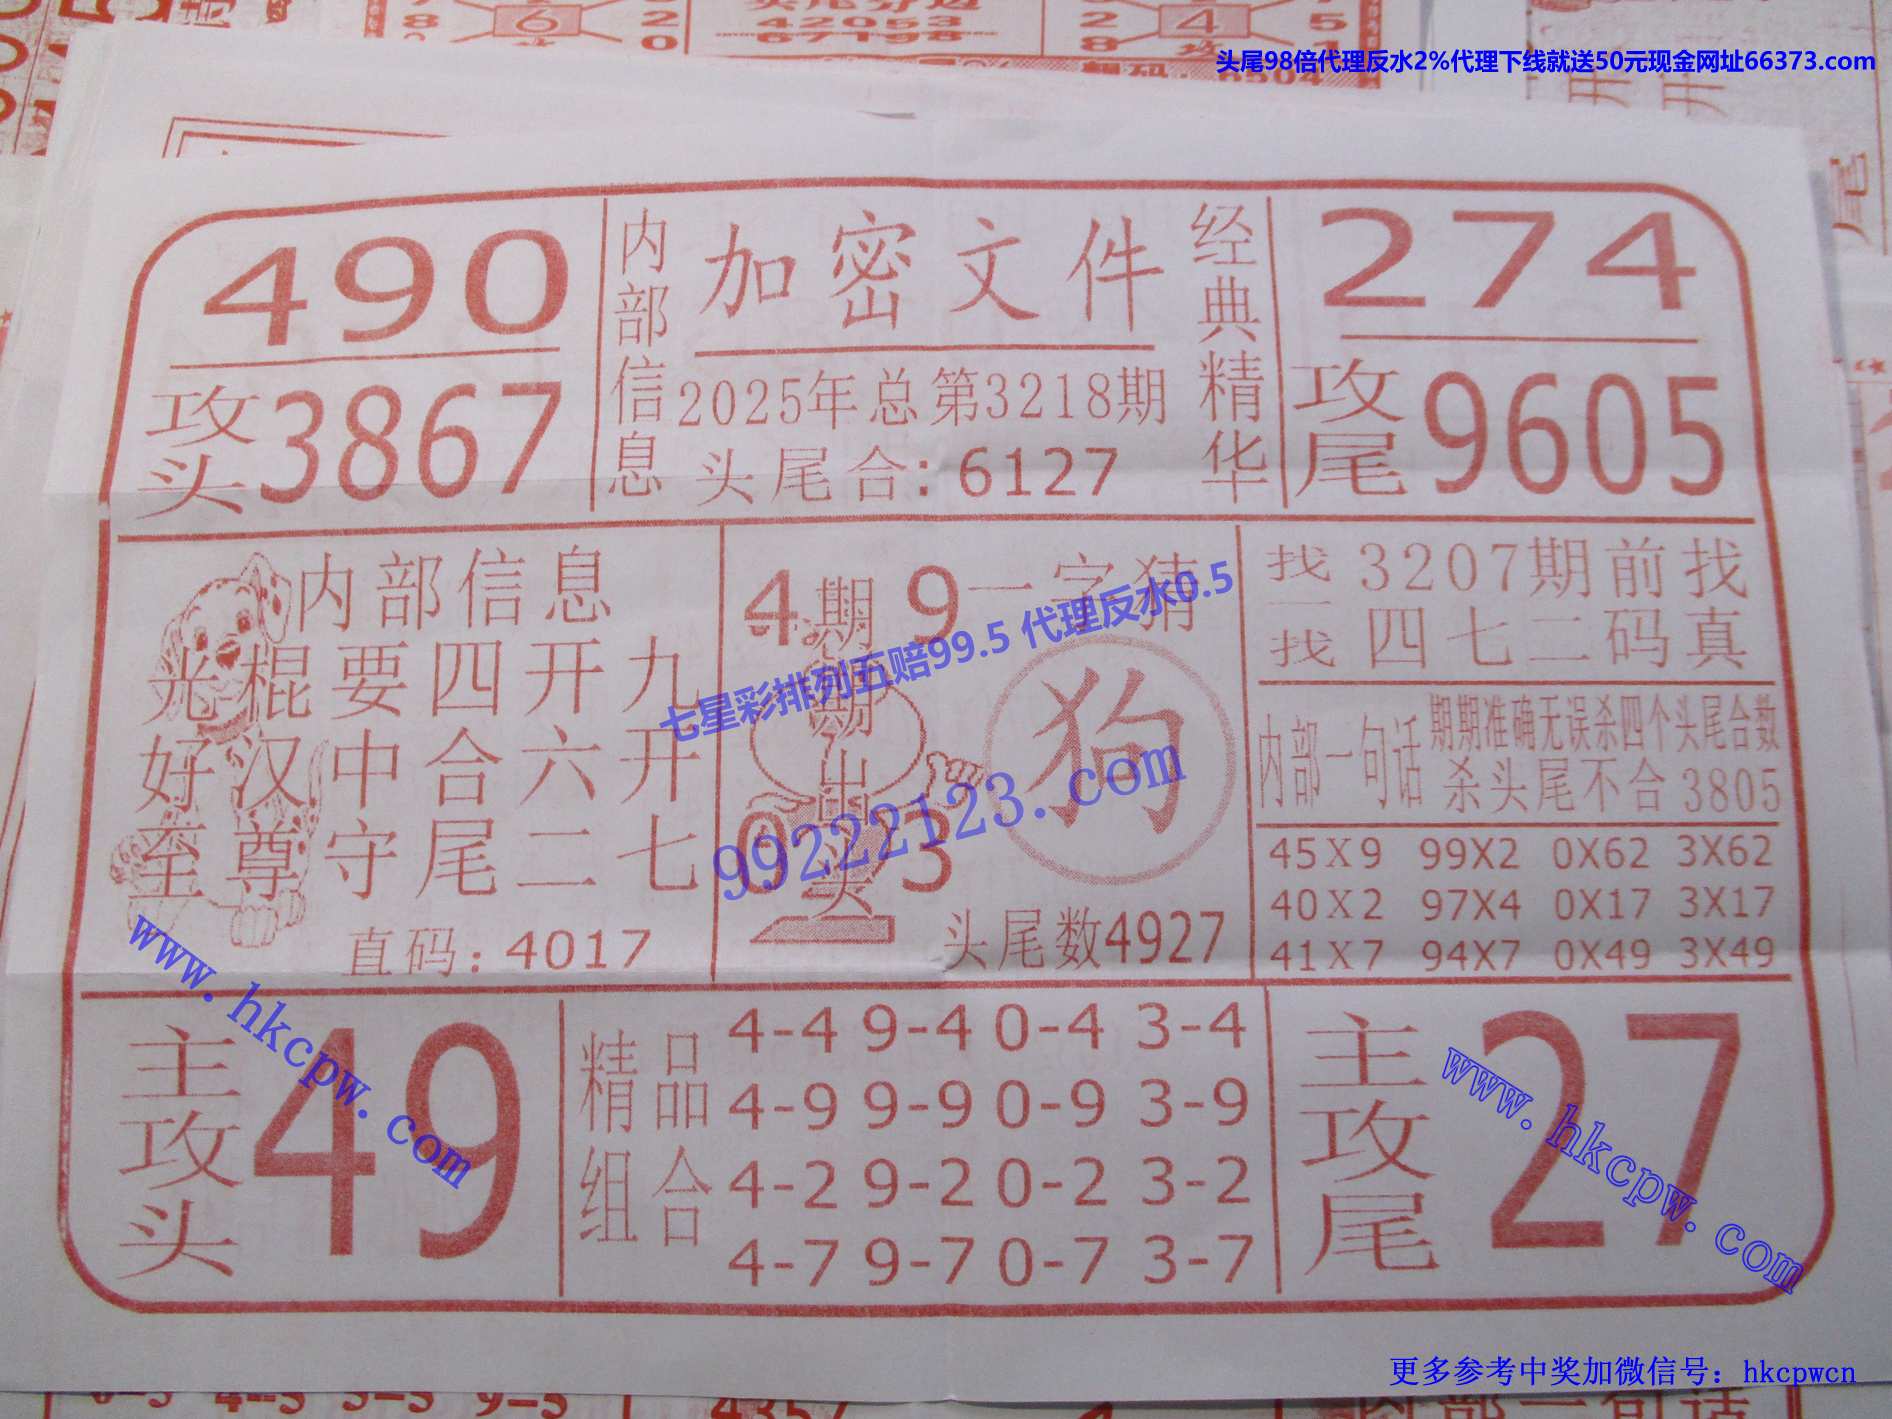 头尾98倍代理反水2%代理下线就送50元现金网址66373.com
头尾分过
42053
67198
6
4
490
攻头3867
内部信息
加密文件
2025年总第3218期
头尾合:6127
经典精华
274
攻尾9605
内部信息
光棍要四开九
好汉中合六开
至尊守尾二七
直码:4017
4 9
期期出头
0 3
一字猜
狗
头尾数4927
找一找
3207期前找
四七二码真
内部一句话
期期准确无误杀四个头尾合数
杀头尾不合3805
45X9 99X2 0X62 3X62
40X2 97X4 0X17 3X17
41X7 94X7 0X49 3X49
七星彩排列五赔99.5 代理反水0.5
99222123.com
www.hkcpw.com
主攻头
49
精品组合
4-4 9-4 0-4 3-4
4-9 9-9 0-9 3-9
4-2 9-2 0-2 3-2
4-7 9-7 0-7 3-7
主攻尾
27
www.hkcpw.com
更多参考中奖加微信号：hkcpwcn
4357